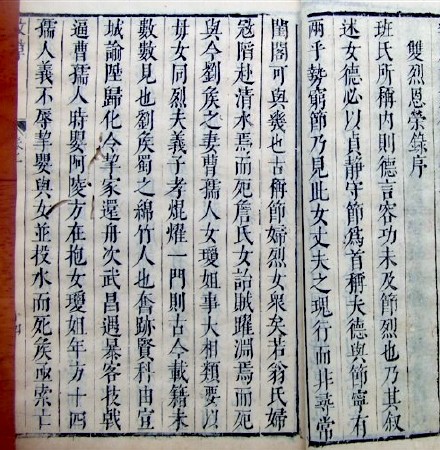 雙烈恩榮錄序
班氏所稱內則德言容功未及節烈也乃其叙
述女德必以貞靜守節為首稱夫德與節寧有
兩乎埶窮節乃見此女丈夫之瑰行而非尋常
閨閤可與幾也古稱節婦烈女衆矣若翁氏婦
冦陷赴清水焉而死詹氏女詒賊躍淵焉而死
與今劉矦之妻曹孺人女瓊姐事大相類要以
母女同烈夫義子孝焜燿一門則古今載籍未
數數見也劉矦蜀之綿竹人也奮跡賢科由宣
城諭陞歸化令挈家還舟次武昌遇暴客技戟
逼曹孺人時嬰阿陵方在抱女瓊姐年方十四
孺人義不辱挈嬰與女並投水而死矦亟索亡